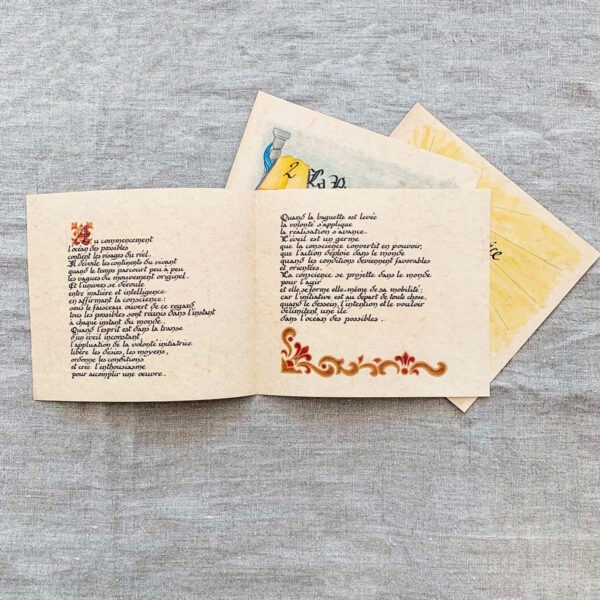 Au commencement
l'océan des possibles
contient les visages du réel.
Il dévoile les continents du vivant
quand le temps parcourt peu à peu
les vagues du mouvement originel.
Et l'univers se déroule
entre matière et intelligence
en affirmant la conscience :
sous le faisceau ouvert de ce regard
tous les possibles sont réunis dans l'instant
à chaque instant du monde.
Quand l'esprit est dans la transe
d'un éveil inconstant,
l'application de la volonté initiatrice
libère les désirs, les moyens,
ordonne les conditions
et crée l'enthousiasme
pour accomplir une oeuvre.
Quand la baguette est levée
la volonté s'applique
la réalisation s'avance.
L'éveil est un germe
que la conscience convertit en pouvoir,
que l'action déploie dans le monde
quand les conditions deviennent favorables
et orientées.
La conscience se projette dans le monde
pour l'agir
et elle se forme elle-même de sa mobilité ;
car l'initiative est au départ de toute chose.
quand le dessein, l'intention et le vouloir
délimitent une île
dans l'océan des possibles.
2
La P
ice